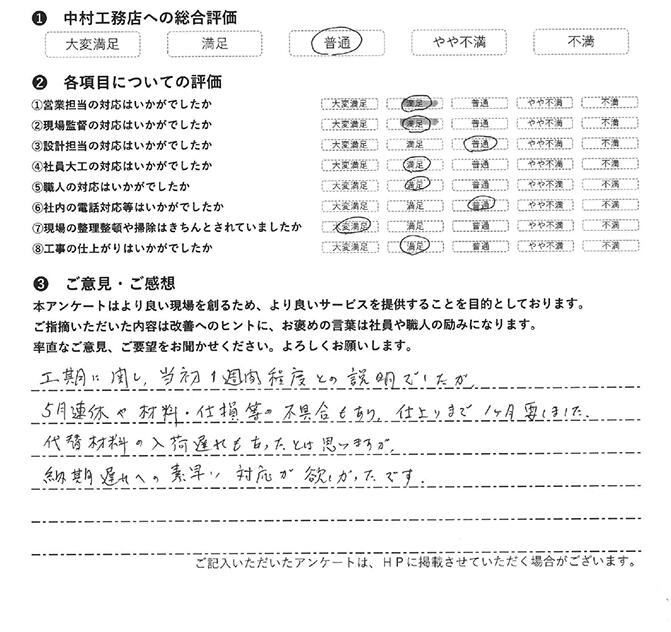 ❶ 中村工務店への総合評価
大変満足 満足 普通 やや不満 不満
❷ 各項目についての評価
①営業担当の対応はいかがでしたか 大変満足 満足 普通 やや不満 不満
②現場監督の対応はいかがでしたか 大変満足 満足 普通 やや不満 不満
③設計担当の対応はいかがでしたか 大変満足 満足 普通 やや不満 不満
④社員大工の対応はいかがでしたか 大変満足 満足 普通 やや不満 不満
⑤職人の対応はいかがでしたか 大変満足 満足 普通 やや不満 不満
⑥社内の電話対応等はいかがでしたか 大変満足 満足 普通 やや不満 不満
⑦現場の整理整頓や掃除はきちんとされていましたか 大変満足 満足 普通 やや不満 不満
⑧工事の仕上がりはいかがでしたか 大変満足 満足 普通 やや不満 不満
❸ ご意見・ご感想
本アンケートはより良い現場を創るため、より良いサービスを提供することを目的としております。
ご指摘いただいた内容は改善へのヒントに、お褒めの言葉は社員や職人の励みになります。
率直なご意見、ご要望をお聞かせください。よろしくお願いします。
工期に関し、当初1週間程度との説明でしたが、
5月連休や材料・仕損等の不具合もあり、仕上りまで1ヶ月要しました。
代替材料の入荷遅れもあったとは思いますが、
納期遅れへの素早い対応が欲しかったです。
ご記入いただいたアンケートは、HPに掲載させていただく場合がございます。